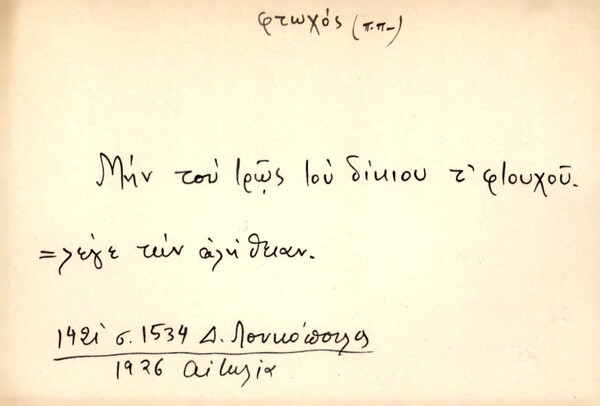 φτωχός (π.π-)
Μήν τού τρῷς τού δίκιου τ' φτουχοῦ.
= λέγε τήν αλήθειαν.
1421 σ. 1534 Δ. Λουκόπουλος
1926 Αἰτωλία